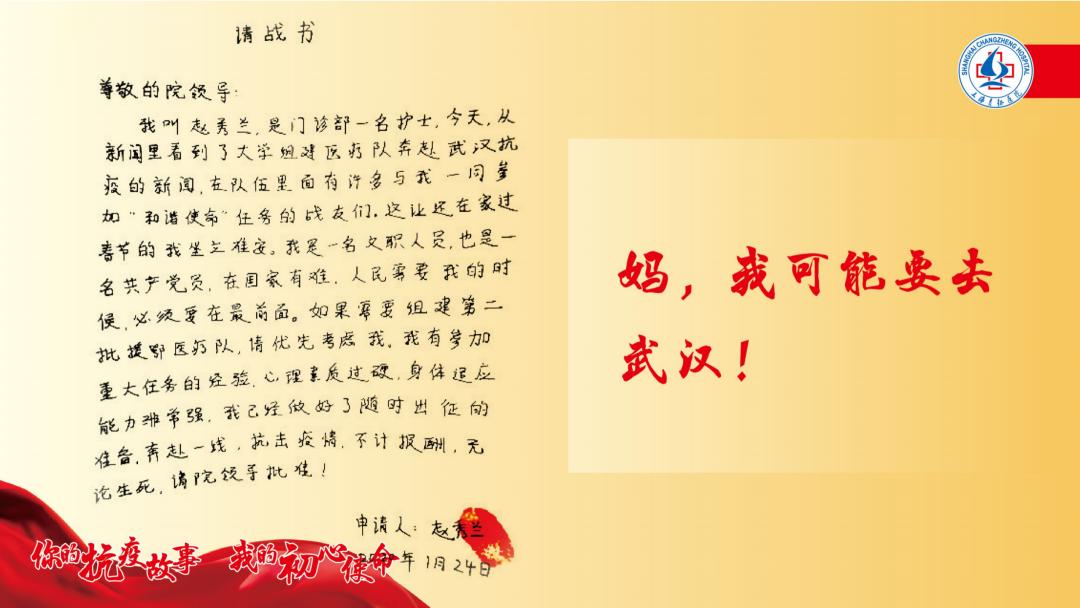 请战书
尊敬的院领导:
我叫赵秀兰,是门诊部一名护士,今天,从
新闻里看到了大学组建医疗队奔赴武汉抗
疫的新闻,在队伍里面有许多与我一同参
加“和谐使命”任务的战友们。这让还在家过
春节的我坐立难安。我是一名文职人员,也是一
名共产党员,在国家有难,人民需要我的时
候,必须要在最前面。如果需要组建第二
批援鄂医疗队,请优先考虑我。我有参加
重大任务的经验,心理素质过硬,身体适应
能力非常强,我已经做好了随时出征的
准备,奔赴一线,抗击疫情,不计报酬,无
论生死,请院领导批准!
申请人:赵秀兰
年1月24日
SHANGHAI CHANGZHENG HOSPITAL
上海长征医院
妈,我可能要去
武汉!
你的抗疫故事 我的初心使命